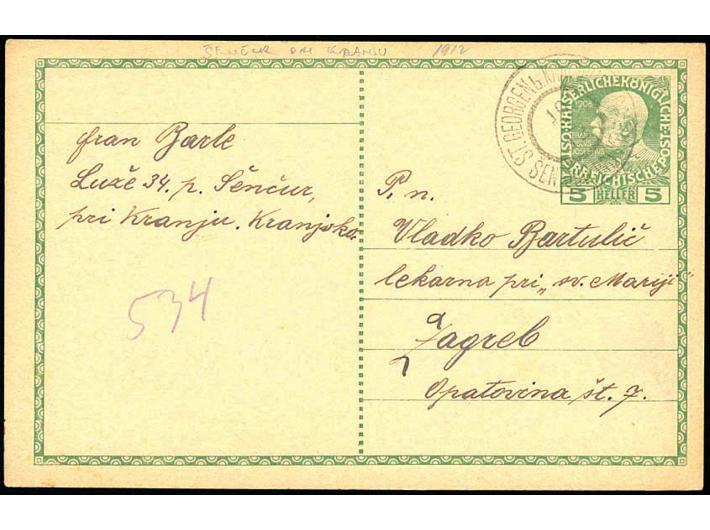 ŠENČUR PRI KRANJU 1912
Fran Barle
Luže 34. p. Šenčur,
pri Kranju. Kranjsko.
534
ST. GEORGEN b.
ŠEN
1908
KAISERLICHE KÖNIGLICHE
POST
REICHISCHE
5 HELLER 5
P. n.
Vladko Bartulić
lekarna pri „sv. Mariji"
Zagreb
Opatovina št. 7.